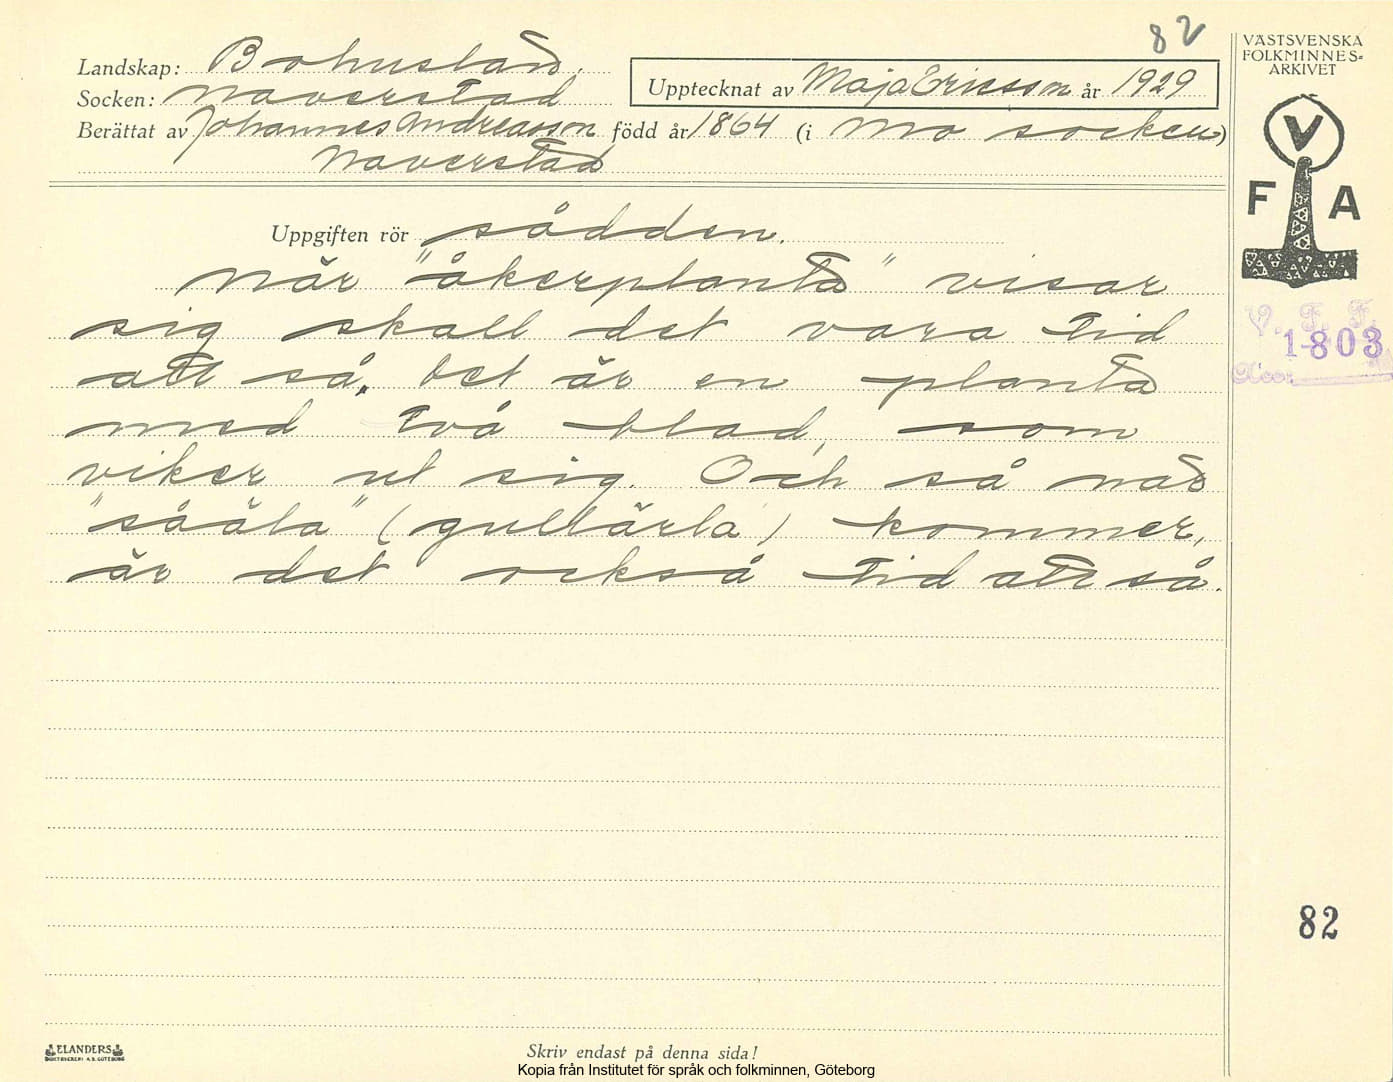 82
Landskap: Bohuslän.
Socken: Naverstad
Upptecknat av Maja Ericsson år 1929
Berättat av Johannes Andreasson född år 1864 (i Mo socken)
Naverstad
VÄSTSVENSKA
FOLKMINNES-
ARKIVET
V
F A
Uppgiften rör sådden.
När "åkerplanta" visar
sig skall det vara tid
att så. Det är en planta
med två blad, som
viker ut sig. Och så när
"sååla" (gullärla) kommer,
är det också tid att så.
V. F. F.
1803
Acc:
82
ELANDERS
BOKTRYCKERI A.B. GÖTEBORG
Skriv endast på denna sida!
Kopia från Institutet för språk och folkminnen, Göteborg